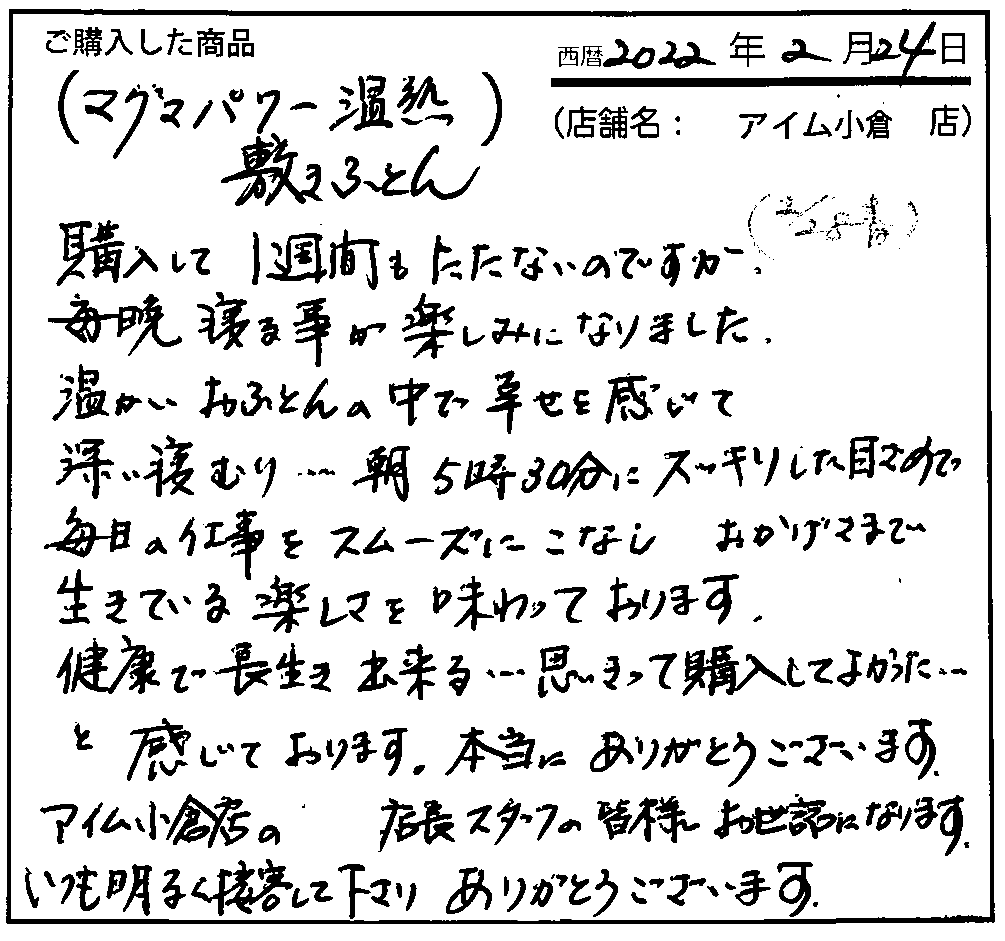 ご購入した商品
西暦2022年2月24日
(マグマパワー温熱)
敷きふとん
(店舗名： アイム小倉 店)
(2/28着)
購入して 1週間も たたないのですが、
毎晩 寝る事が 楽しみになりました。
温かい おふとんの 中で 幸せを 感じて
深い寝むり… 朝 5時30分に スッキリした目さめで
毎日の仕事を スムーズに こなし おかげさまで
生きている 楽しさを 味わって おります。
健康で 長生き 出来る… 思いきって購入してよかった…
と 感じて おります。本当に ありがとうございます。
アイム小倉店の 店長スタッフの 皆様 お世話になります。
いつも明るく接客して下さり ありがとうございます。